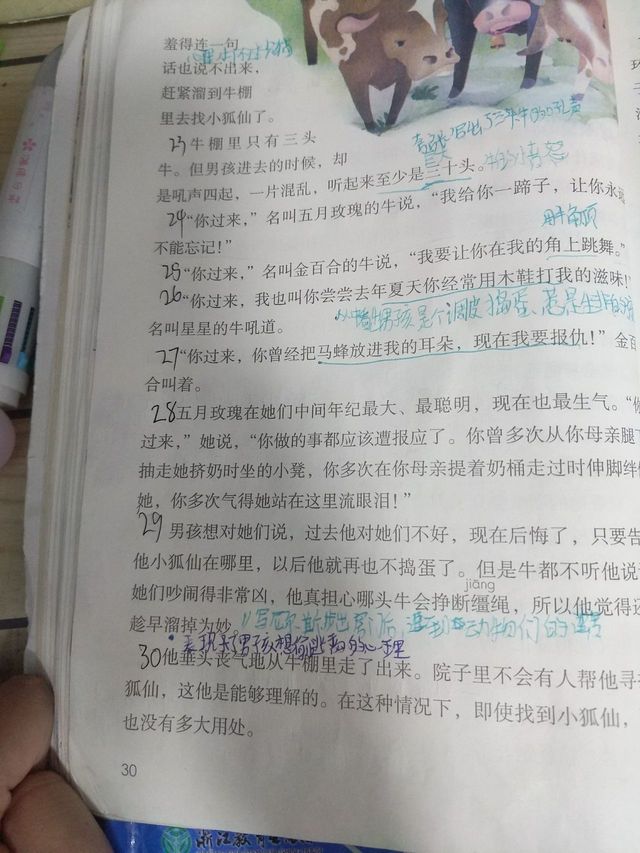 羞得连一句
话也说不出来，
赶紧溜到牛棚
里去找小狐仙了。
23 牛棚里只有三头
牛。但男孩进去的时候，却
是吼声四起，一片混乱，听起来至少是三十头。
24 “你过来，”名叫五月玫瑰的牛说，“我给你一蹄子，让你永远
用牛角顶
不能忘记！”
25 “你过来，”名叫金百合的牛说，“我要让你在我的角上跳舞。”
26 “你过来，我也叫你尝尝去年夏天你经常用木鞋打我的滋味！”
名叫星星的牛吼道。
男孩是个调皮捣蛋、惹是生非的
27 “你过来，你曾经把马蜂放进我的耳朵，现在我要报仇！”金百
合叫着。
28 五月玫瑰在她们中间年纪最大、最聪明，现在也最生气。“你
过来，”她说，“你做的事都应该遭报应了。你曾多次从你母亲腿下
抽走她挤奶时坐的小凳，你多次在你母亲提着奶桶走过时伸脚绊
她，你多次气得她站在这里流眼泪！”
29 男孩想对她们说，过去他对她们不好，现在后悔了，只要告
他小狐仙在哪里，以后他就再也不捣蛋了。但是牛都不听他说
jiāng
她们吵闹得非常凶，他真担心哪头牛会挣断缰绳，所以他觉得还
趁早溜掉为妙。
表现了男孩想偷逃离的心理
30 他垂头丧气地从牛棚里走了出来。院子里不会有人帮他寻
狐仙，这他是能够理解的。在这种情况下，即使找到小狐仙，
也没有多大用处。
30
浙江教育